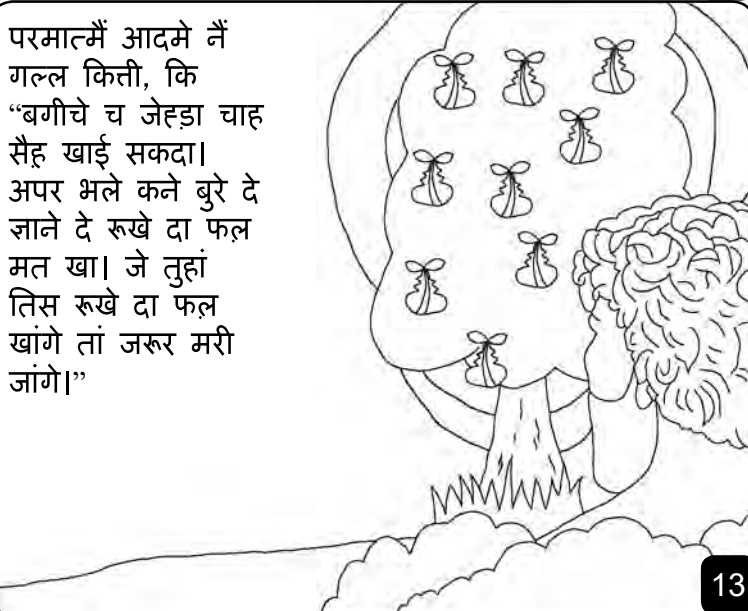 परमात्मैं आदमे नैं
गल्ल कित्ती, कि
“बगीचे च जेह्ड़ा चाह
सैह़ खाई सकदा।
अपर भले कने बुरे दे
ज्ञाने दे रूखे दा फल़
मत खा। जे तुहां
तिस रूखे दा फल़
खांगे तां जरूर मरी
जांगे।”
13